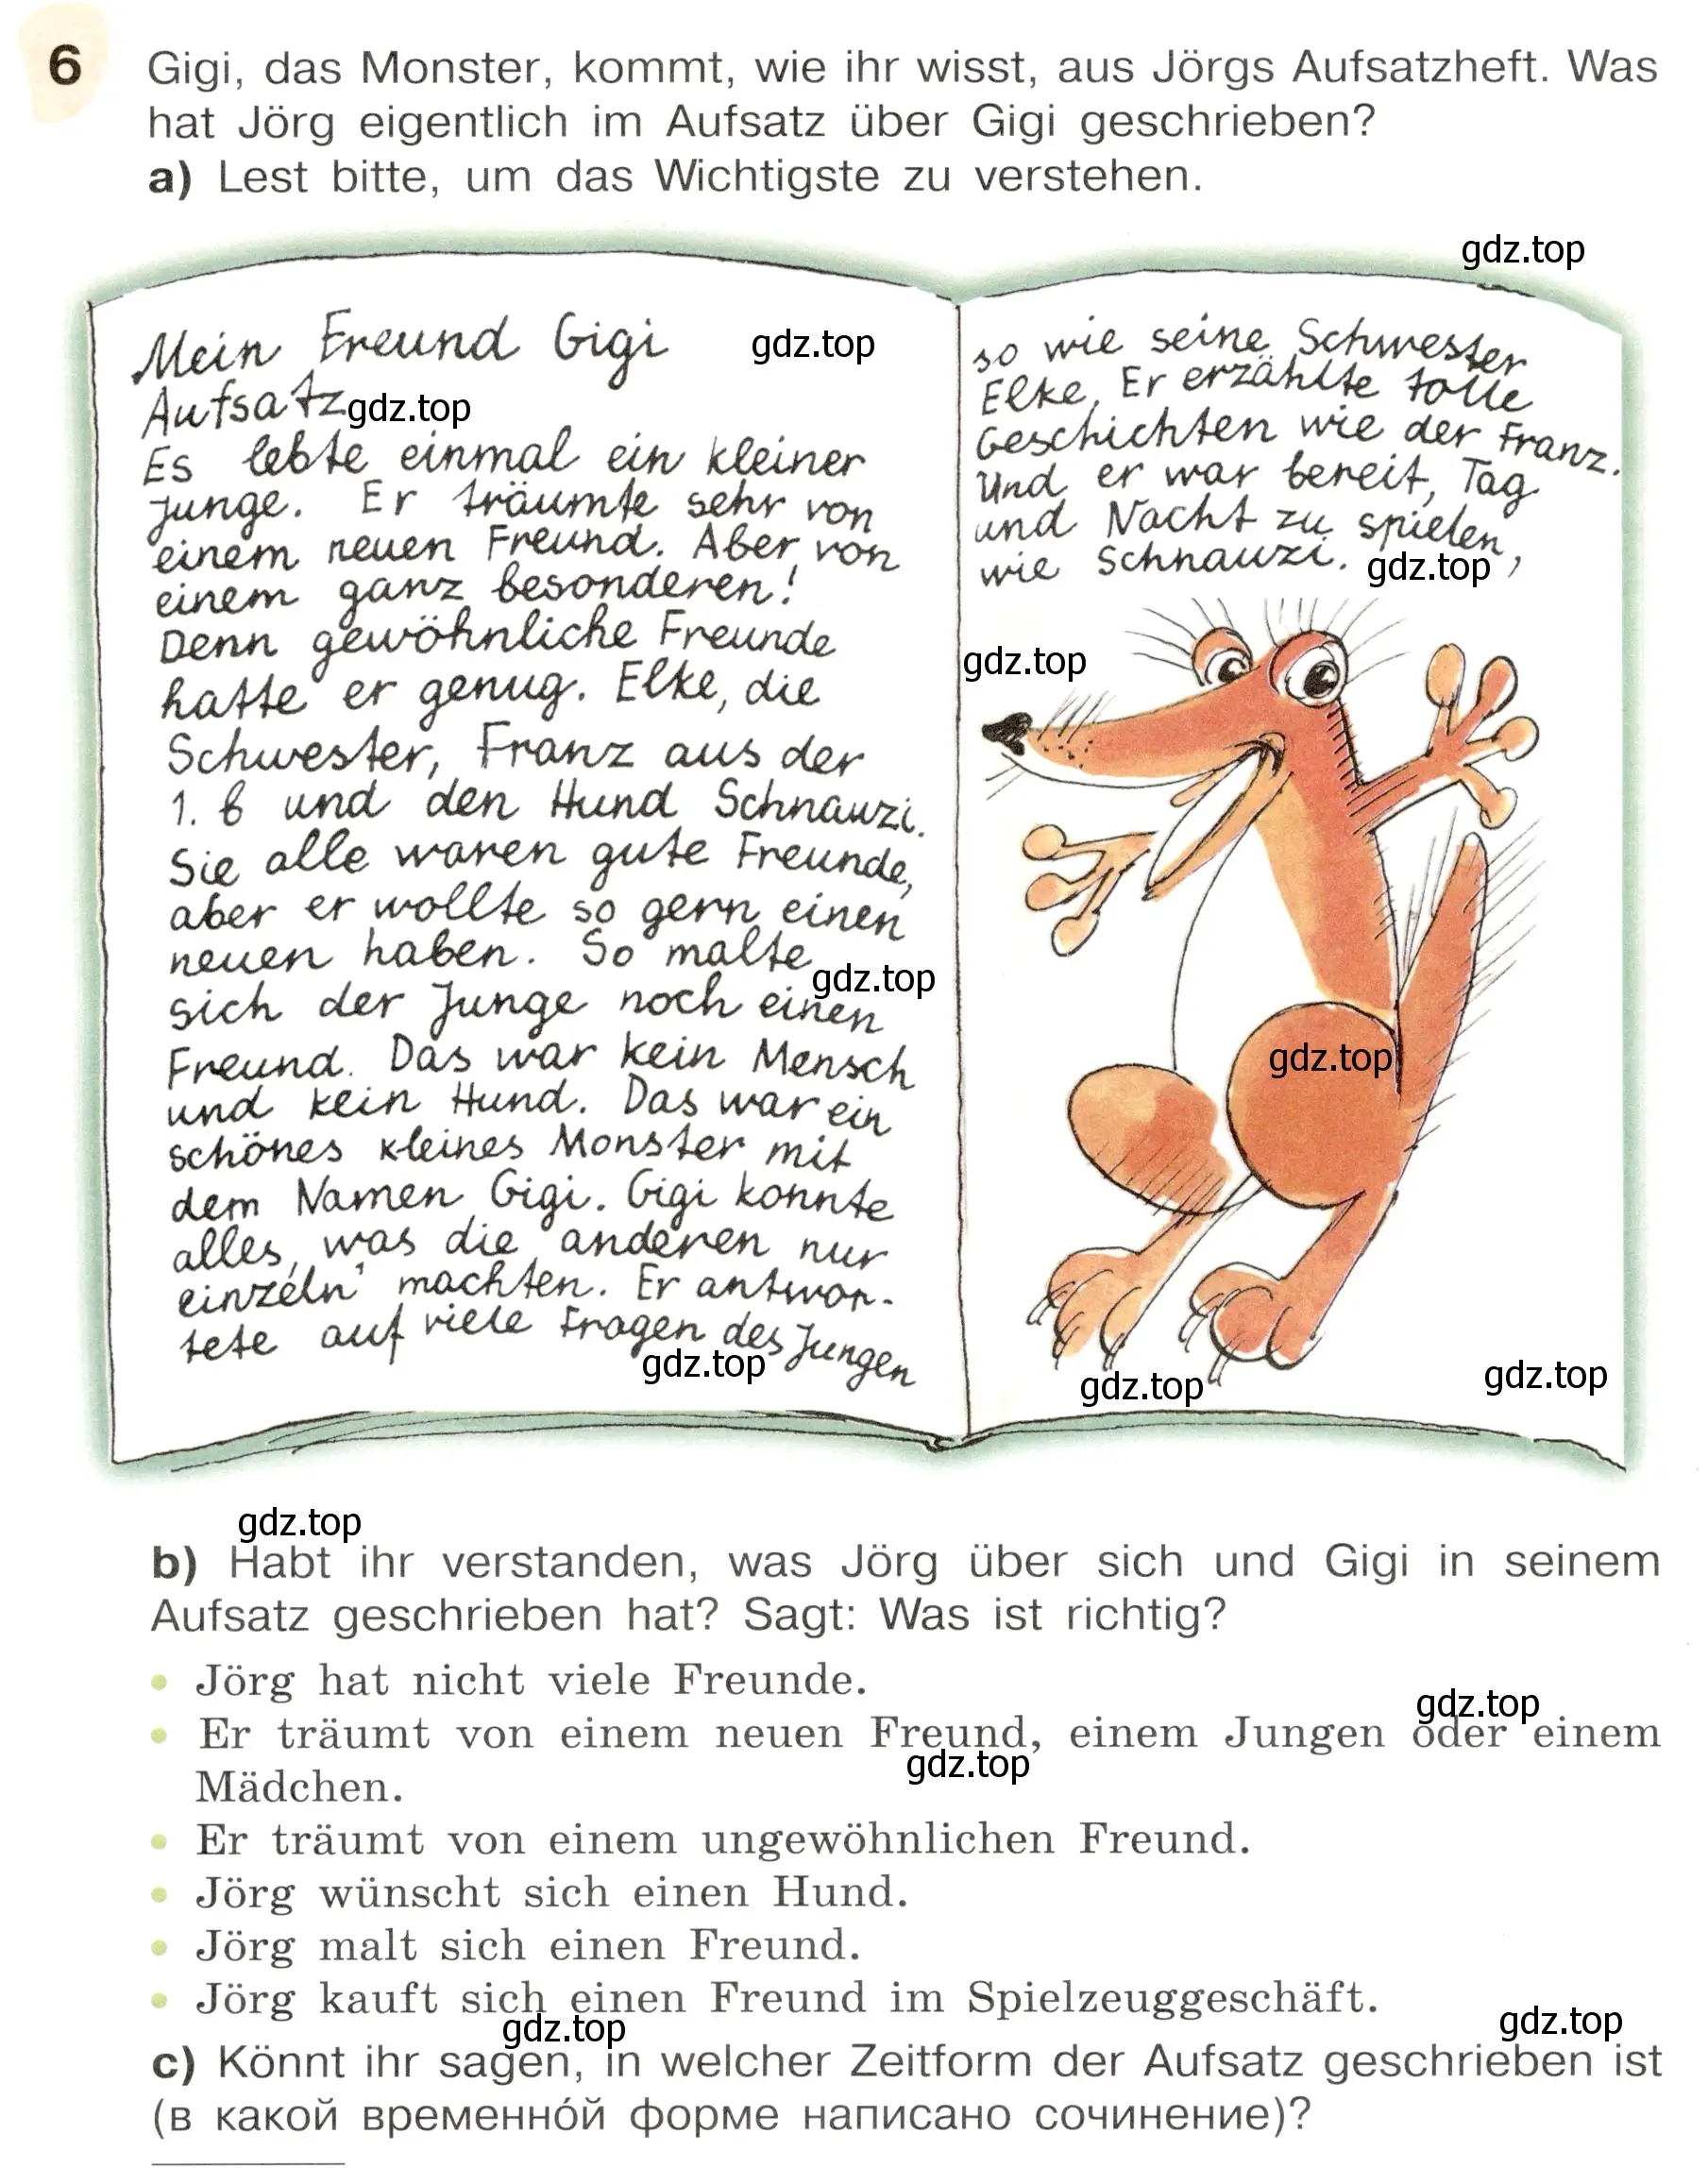 6 Gigi, das Monster, kommt, wie ihr wisst, aus Jörgs Aufsatzheft. Was
hat Jörg eigentlich im Aufsatz über Gigi geschrieben?
a) Lest bitte, um das Wichtigste zu verstehen.
gdz.top
Mein Freund Gigi
gdz.top
Aufsatz
gdz.top
Es lebte einmal ein kleiner
Junge. Er träumte sehr von
einem neuen Freund. Aber von
einem ganz besonderen!
Denn gewöhnliche Freunde
hatte er genug. Elke, die
Schwester, Franz aus der
1. b und den Hund Schnauzi.
Sie alle waren gute Freunde,
aber er wollte so gern einen
neuen haben. So malte
gdz.top
sich der Junge noch einen
Freund. Das war kein Mensch
und kein Hund. Das war ein
schönes kleines Monster mit
dem Namen Gigi. Gigi konnte
alles, was die anderen nur
einzeln¹ machten. Er antwor-
tete auf viele Fragen des Jungen
gdz.top
so wie seine Schwester
Elke. Er erzählte tolle
Geschichten wie der Franz.
Und er war bereit, Tag
und Nacht zu spielen,
wie Schnauzi.
gdz.top
gdz.top
gdz.top
gdz.top
gdz.top
gdz.top
b) Habt ihr verstanden, was Jörg über sich und Gigi in seinem
Aufsatz geschrieben hat? Sagt: Was ist richtig?
• Jörg hat nicht viele Freunde.
gdz.top
• Er träumt von einem neuen Freund, einem Jungen oder einem
gdz.top
Mädchen.
• Er träumt von einem ungewöhnlichen Freund.
• Jörg wünscht sich einen Hund.
• Jörg malt sich einen Freund.
• Jörg kauft sich einen Freund im Spielzeuggeschäft.
gdz.top
gdz.top
c) Könnt ihr sagen, in welcher Zeitform der Aufsatz geschrieben ist
(в какой временно́й форме написано сочинение)?